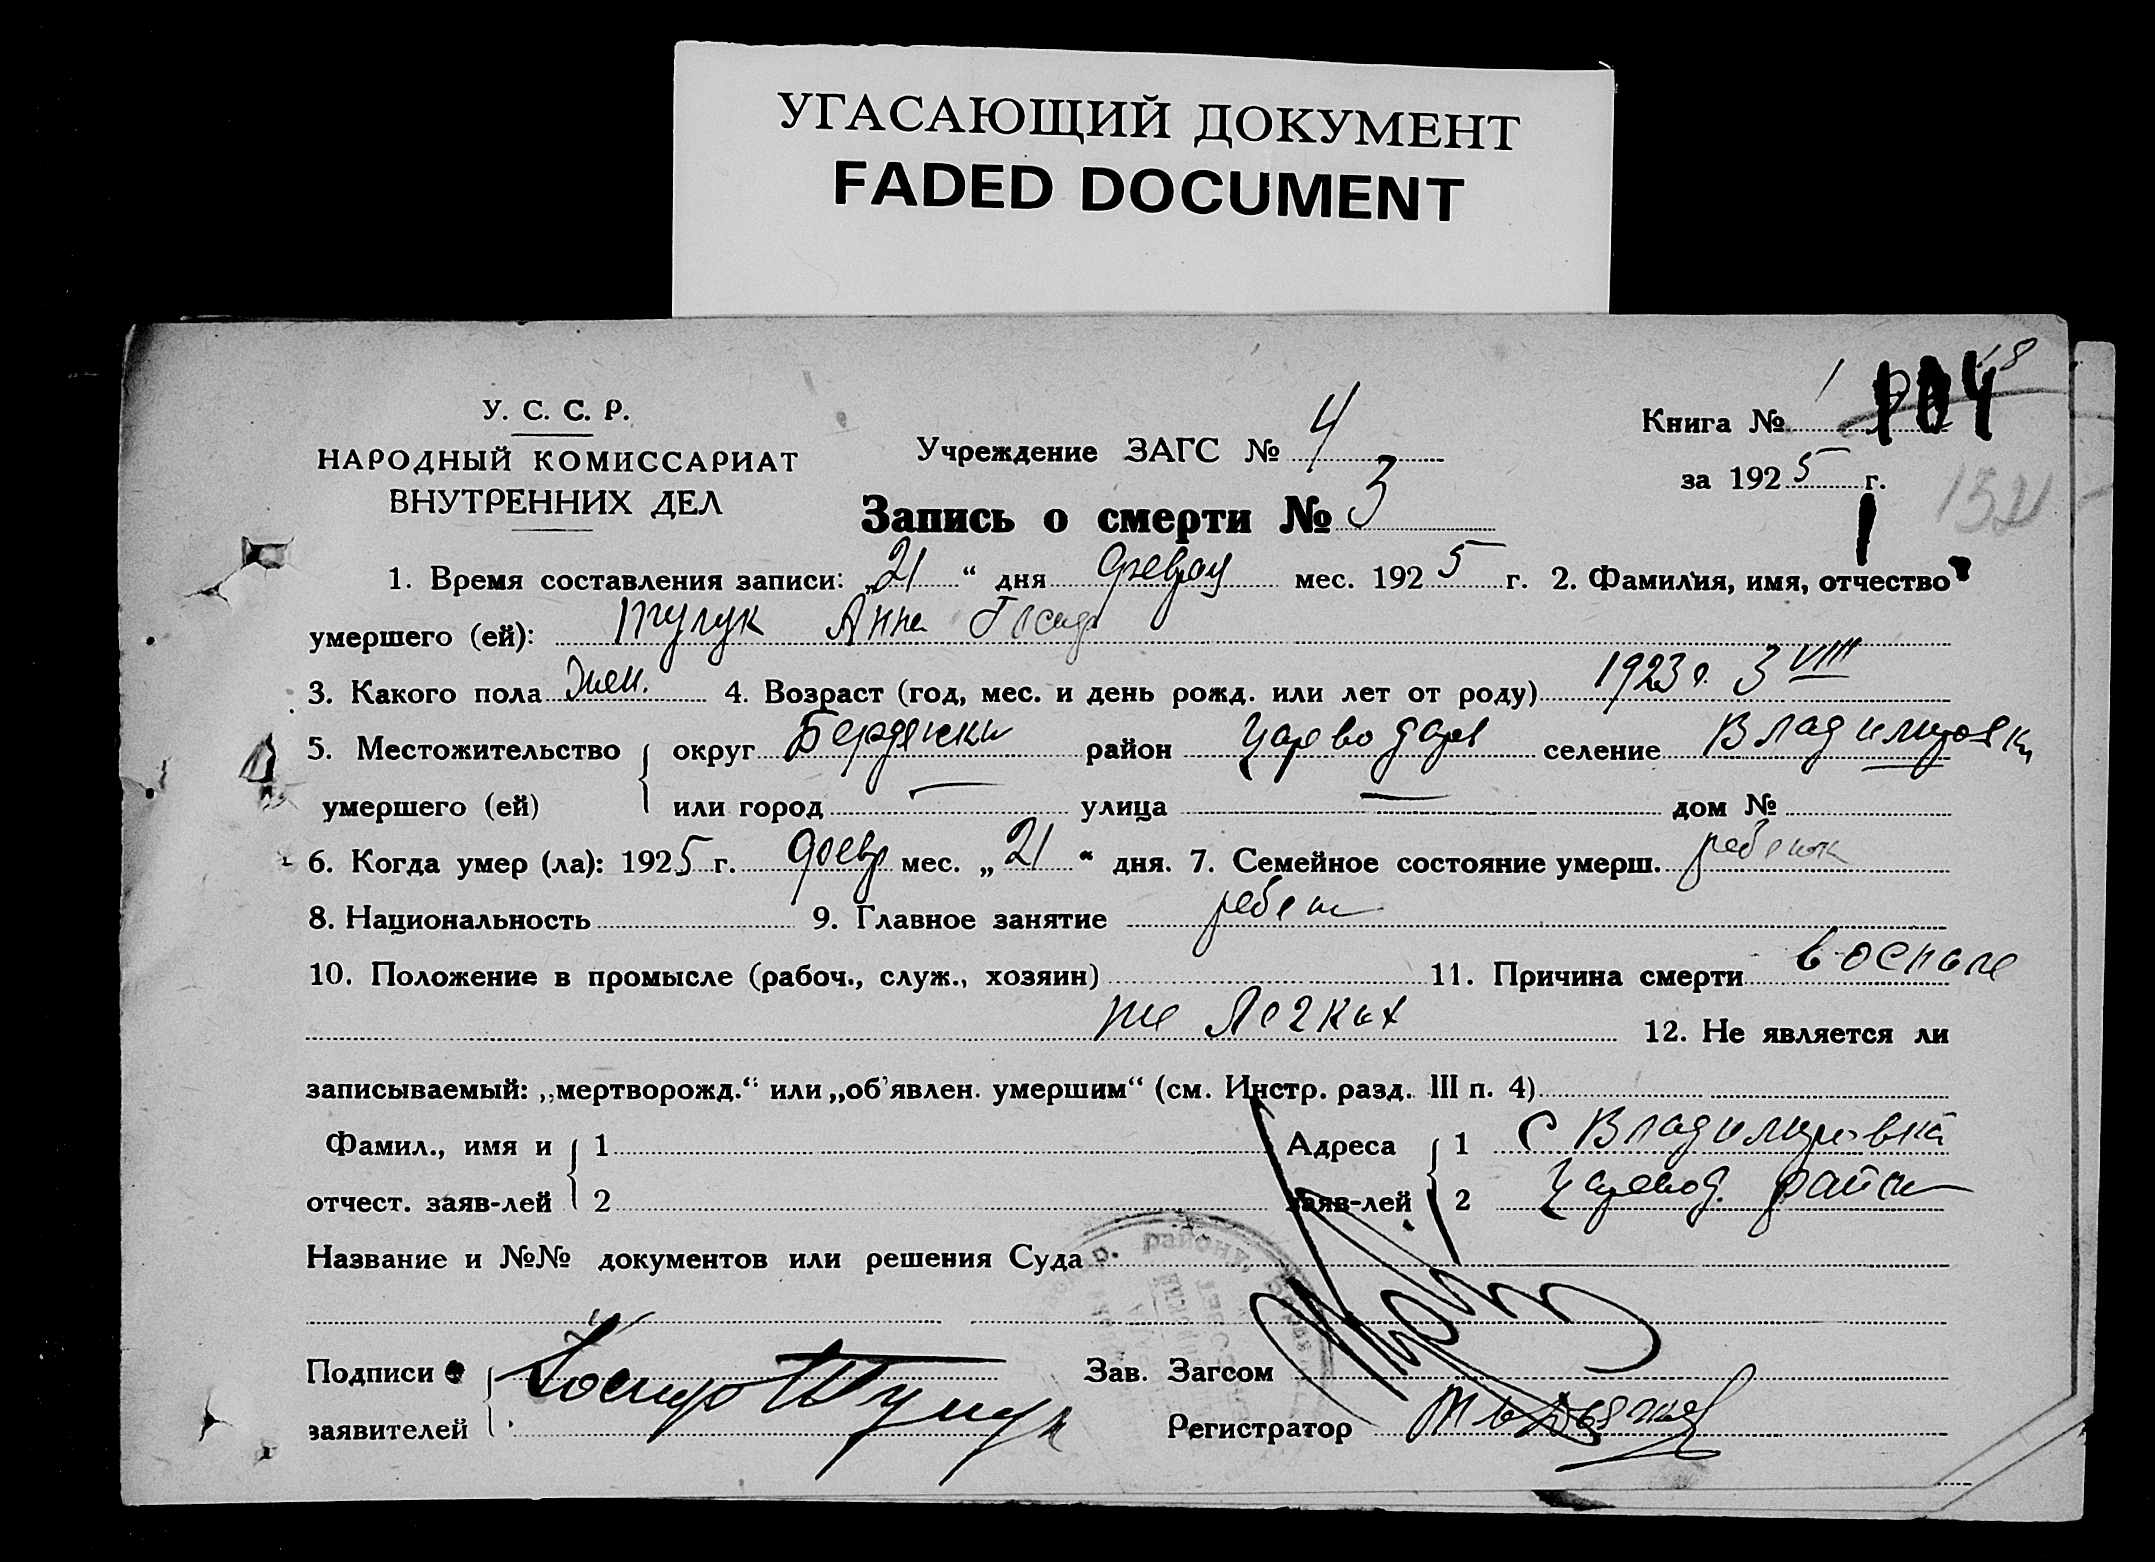 УГАСАЮЩИЙ ДОКУМЕНТ
FADED DOCUMENT
8
У. С. С. Р.
Книга № 1 104
НАРОДНЫЙ КОМИССАРИАТ
ВНУТРЕННИХ ДЕЛ
Учреждение ЗАГС № 4
за 1925 г.
Запись о смерти № 3
1. Время составления записи: „21“ дня феврал мес. 1925 г. 2. Фамилия, имя, отчество
умершего (ей): Тулук Анна
3. Какого пола жен. 4. Возраст (год, мес. и день рожд. или лет от роду) 1923 г. 3 VIII
5. Местожительство округ Бердянски район Цареводар селение Владимировки
умершего (ей) или город — улица — дом №
6. Когда умер (ла): 1925 г. февр мес. „21“ дня. 7. Семейное состояние умерш. ребенок
8. Национальность 9. Главное занятие ребен
10. Положение в промысле (рабоч., служ., хозяин) 11. Причина смерти воспале
ние легких 12. Не является ли
записываемый: „мертворожд.“ или „об'явлен. умершим“ (см. Инстр. разд. III п. 4)
Фамил., имя и 1 Адреса 1 С Владимировка
отчест. заяв-лей 2 заяв-лей 2 Царевод. район
Название и №№ документов или решения Суда
району
Подписи Зав. Загсом
заявителей Регистратор